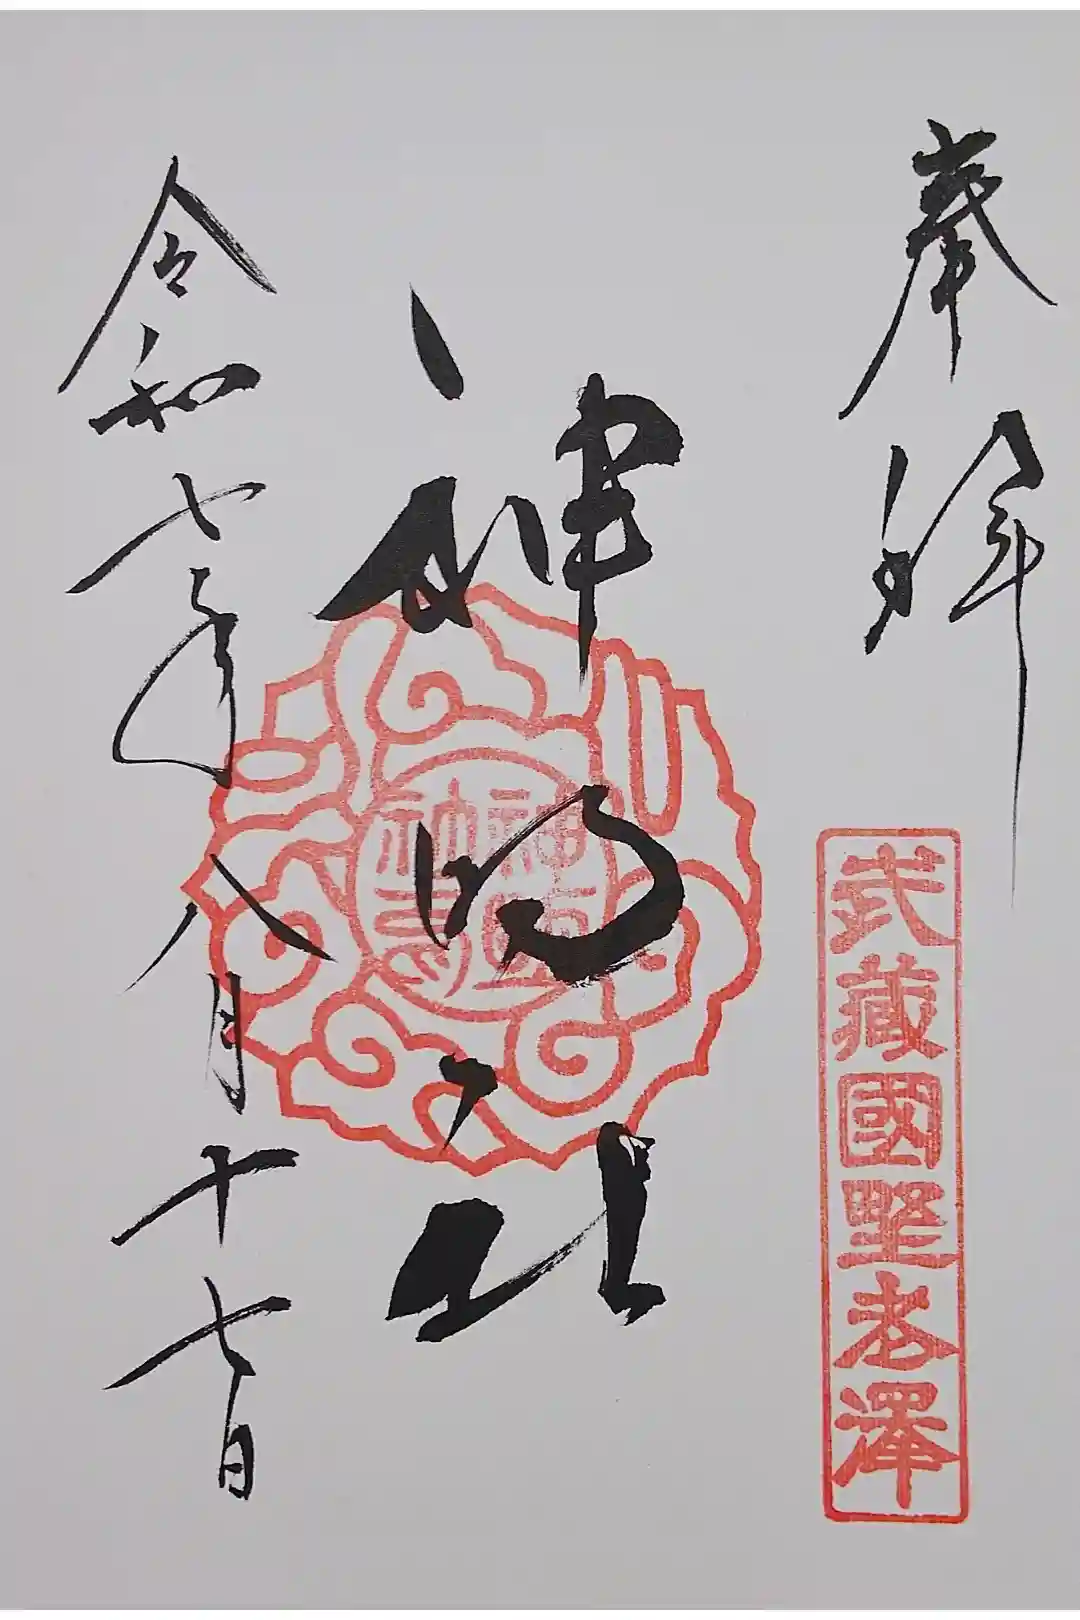 奉拝
武藏國野老澤
神明社
令和七年八月十七日